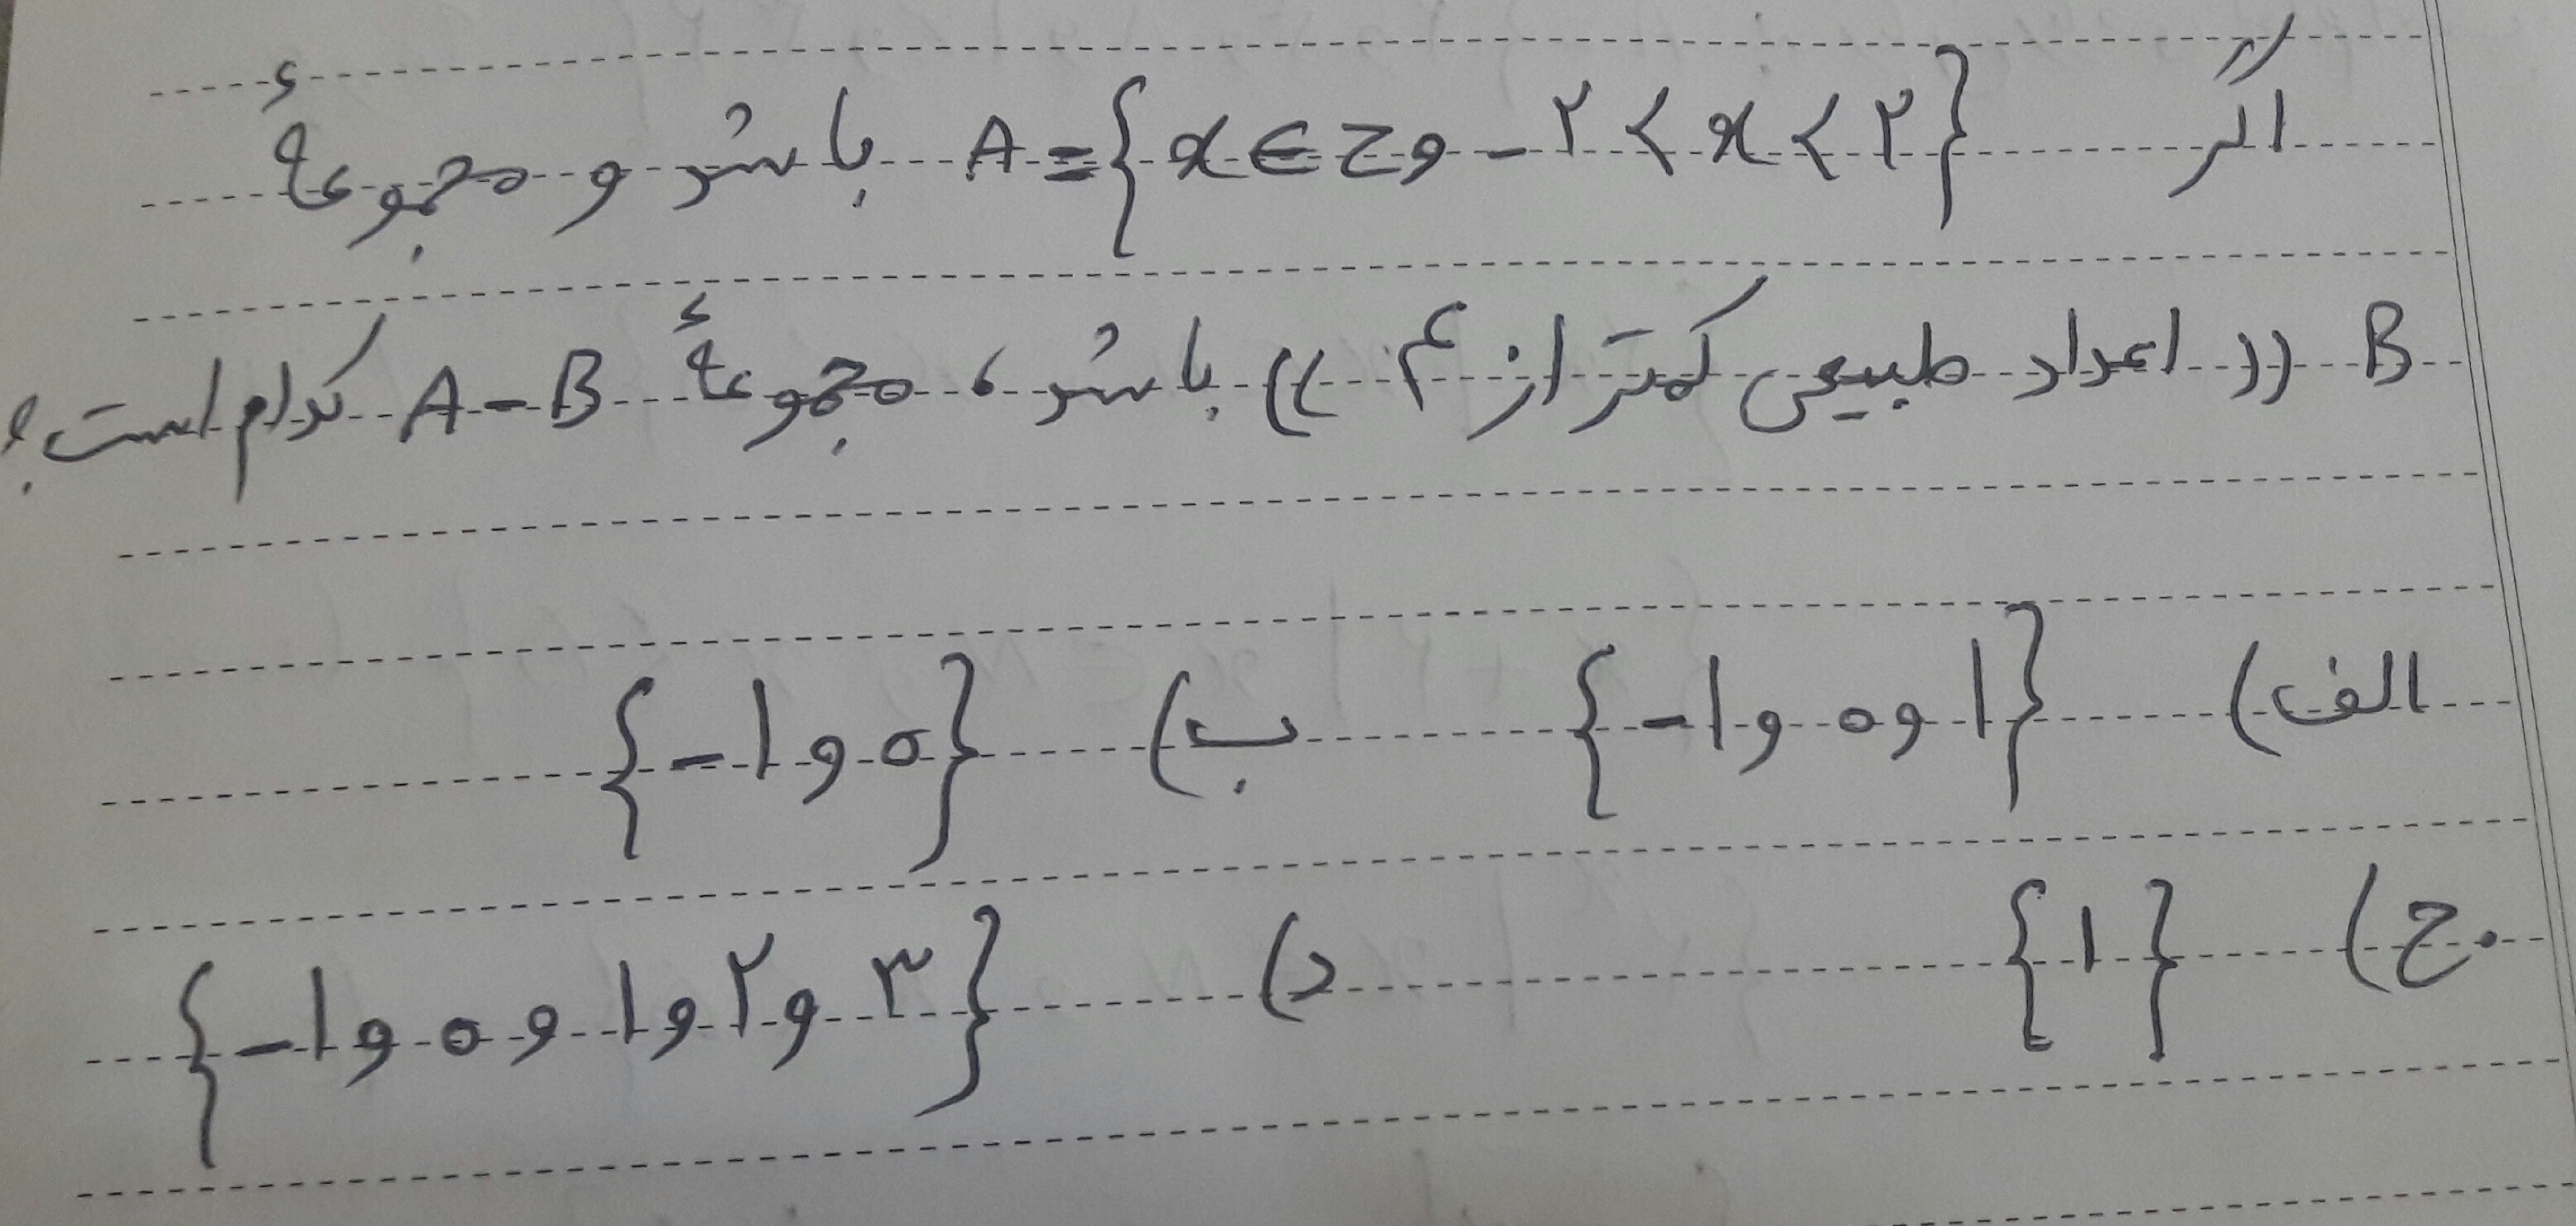 اگر A = {x ∈ Z و -۲ < x < ۲} باشد و مجموعهٔ
B (( اعداد طبیعی کمتر از ۴ )) باشد، مجموعهٔ A - B کدام است؟
الف) {-۱ و ۰ و ۱} ب) {-۱ و ۰}
ج) {۱} د) {-۱ و ۰ و ۱ و ۲ و ۳}